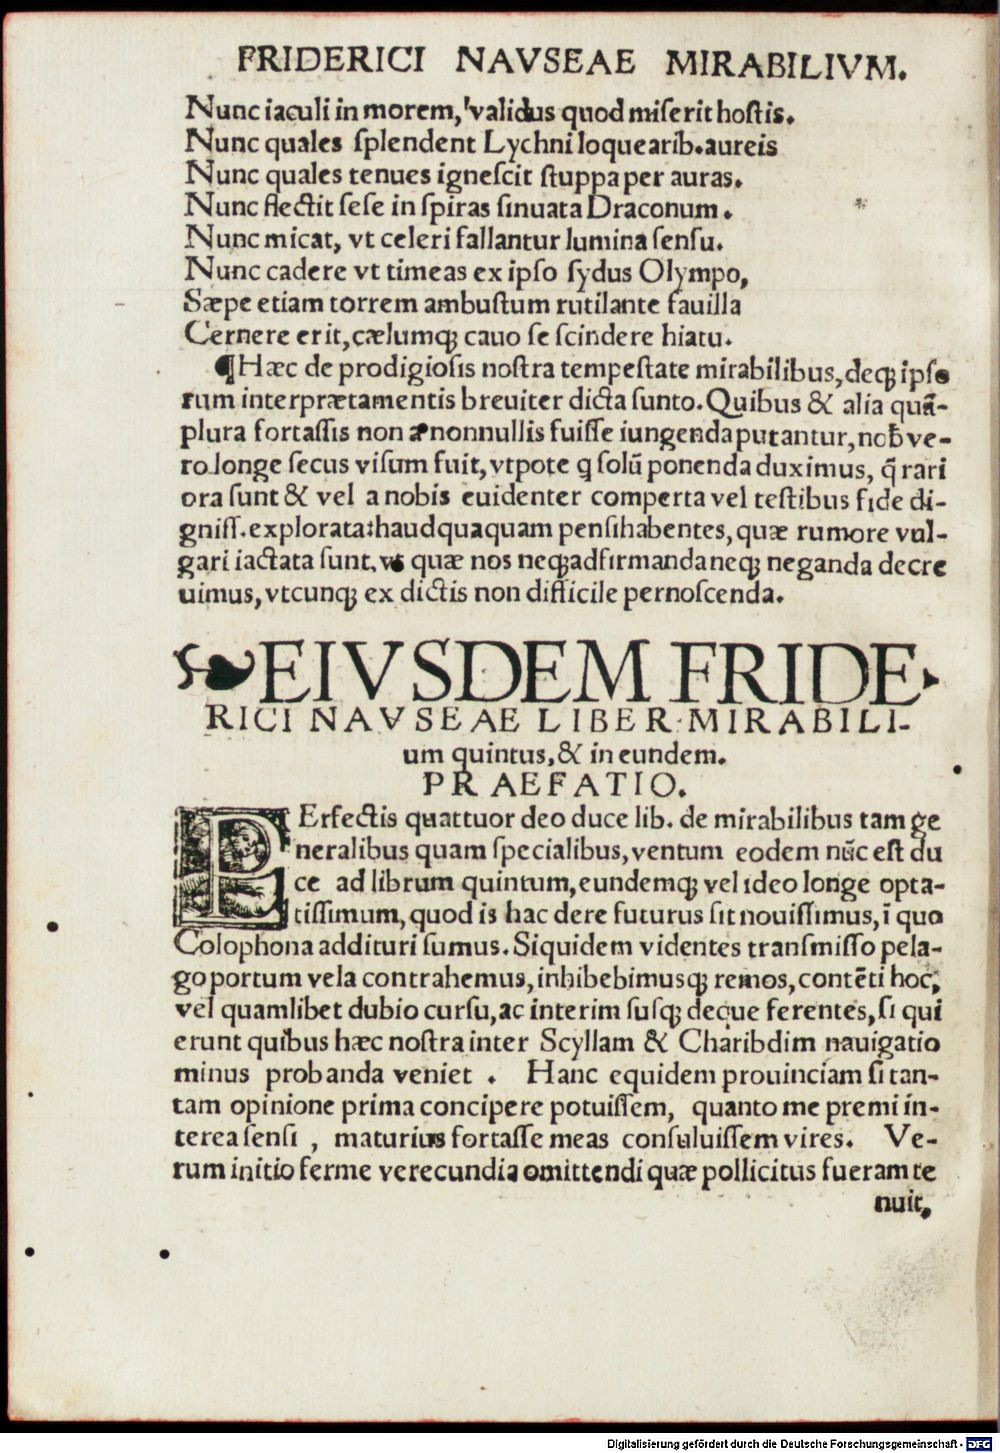 FRIDERICI NAVSEAE MIRABILIVM.
Nunc iaculi in morem, validus quod miſerit hoſtis.
Nunc quales ſplendent Lychni loquearib. aureis
Nunc quales tenues igneſcit ſtuppa per auras.
Nunc flectit ſeſe in ſpiras ſinuata Draconum.
Nunc micat, vt celeri fallantur lumina ſenſu.
Nunc cadere vt timeas ex ipſo ſydus Olympo,
Sæpe etiam torrem ambuſtum rutilante fauilla
Cernere erit, cælumq; cauo ſe ſcindere hiatu.
¶ Hæc de prodigioſis noſtra tempeſtate mirabilibus, deq; ipſo
rum interprætamentis breuiter dicta ſunto. Quibus & alia quā-
plura fortaſſis non a nonnullis fuiſſe iungenda putantur, nob̄ ve-
ro longe ſecus viſum fuit, vtpote q ſolū ponenda duximus, q̄ rari
ora ſunt & vel a nobis euidenter comperta vel teſtibus fide di-
gniſſ. explorata: haudquaquam penſi habentes, quæ rumore vul-
gari iactata ſunt, vt quæ nos neq; adfirmanda neq; neganda decre
uimus, vtcunq; ex dictis non difficile pernoſcenda.
EIVSDEM FRIDE
RICI NAVSEAE LIBER MIRABILI-
um quintus, & in eundem.
PRAEFATIO.
PErfectis quattuor deo duce lib. de mirabilibus tam ge
neralibus quam ſpecialibus, ventum eodem nūc eſt du
ce ad librum quintum, eundemq; vel ideo longe opta-
tiſſimum, quod is hac de re futurus ſit nouiſſimus, ī quo
Colophona addituri ſumus. Siquidem videntes tranſmiſſo pela-
go portum vela contrahemus, inhibebimusq; remos, contēti hoc,
vel quamlibet dubio curſu, ac interim ſuſq; deque ferentes, ſi qui
erunt quibus hæc noſtra inter Scyllam & Charibdim nauigatio
minus probanda veniet. Hanc equidem prouinciam ſi tan-
tam opinione prima concipere potuiſſem, quanto me premi in-
terea ſenſi, maturius fortaſſe meas conſuluiſſem vires. Ve-
rum initio ferme verecundia omittendi quæ pollicitus fueram te
nuit,
Digitalisierung gefördert durch die Deutsche Forschungsgemeinschaft - DFG